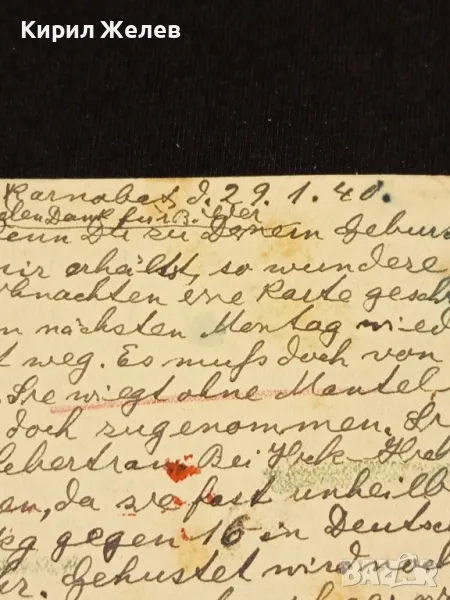 Кирил Желев
Karnobat d. 29.1.40.
elen Dank für Bilder
enn Du zu Deinem Geburt
mir erhältst, so wundere
eihnachten eine Karte geschr
m nächsten Montag wied
t weg. Es muß doch von
. Sie wiegt ohne Mantel
doch zugenommen. Si
Lebertran. Bei
en, da sie fast unheilb
gegen 16 in Deutsc
hr. Gehustet wird noch
BAZAR
bg